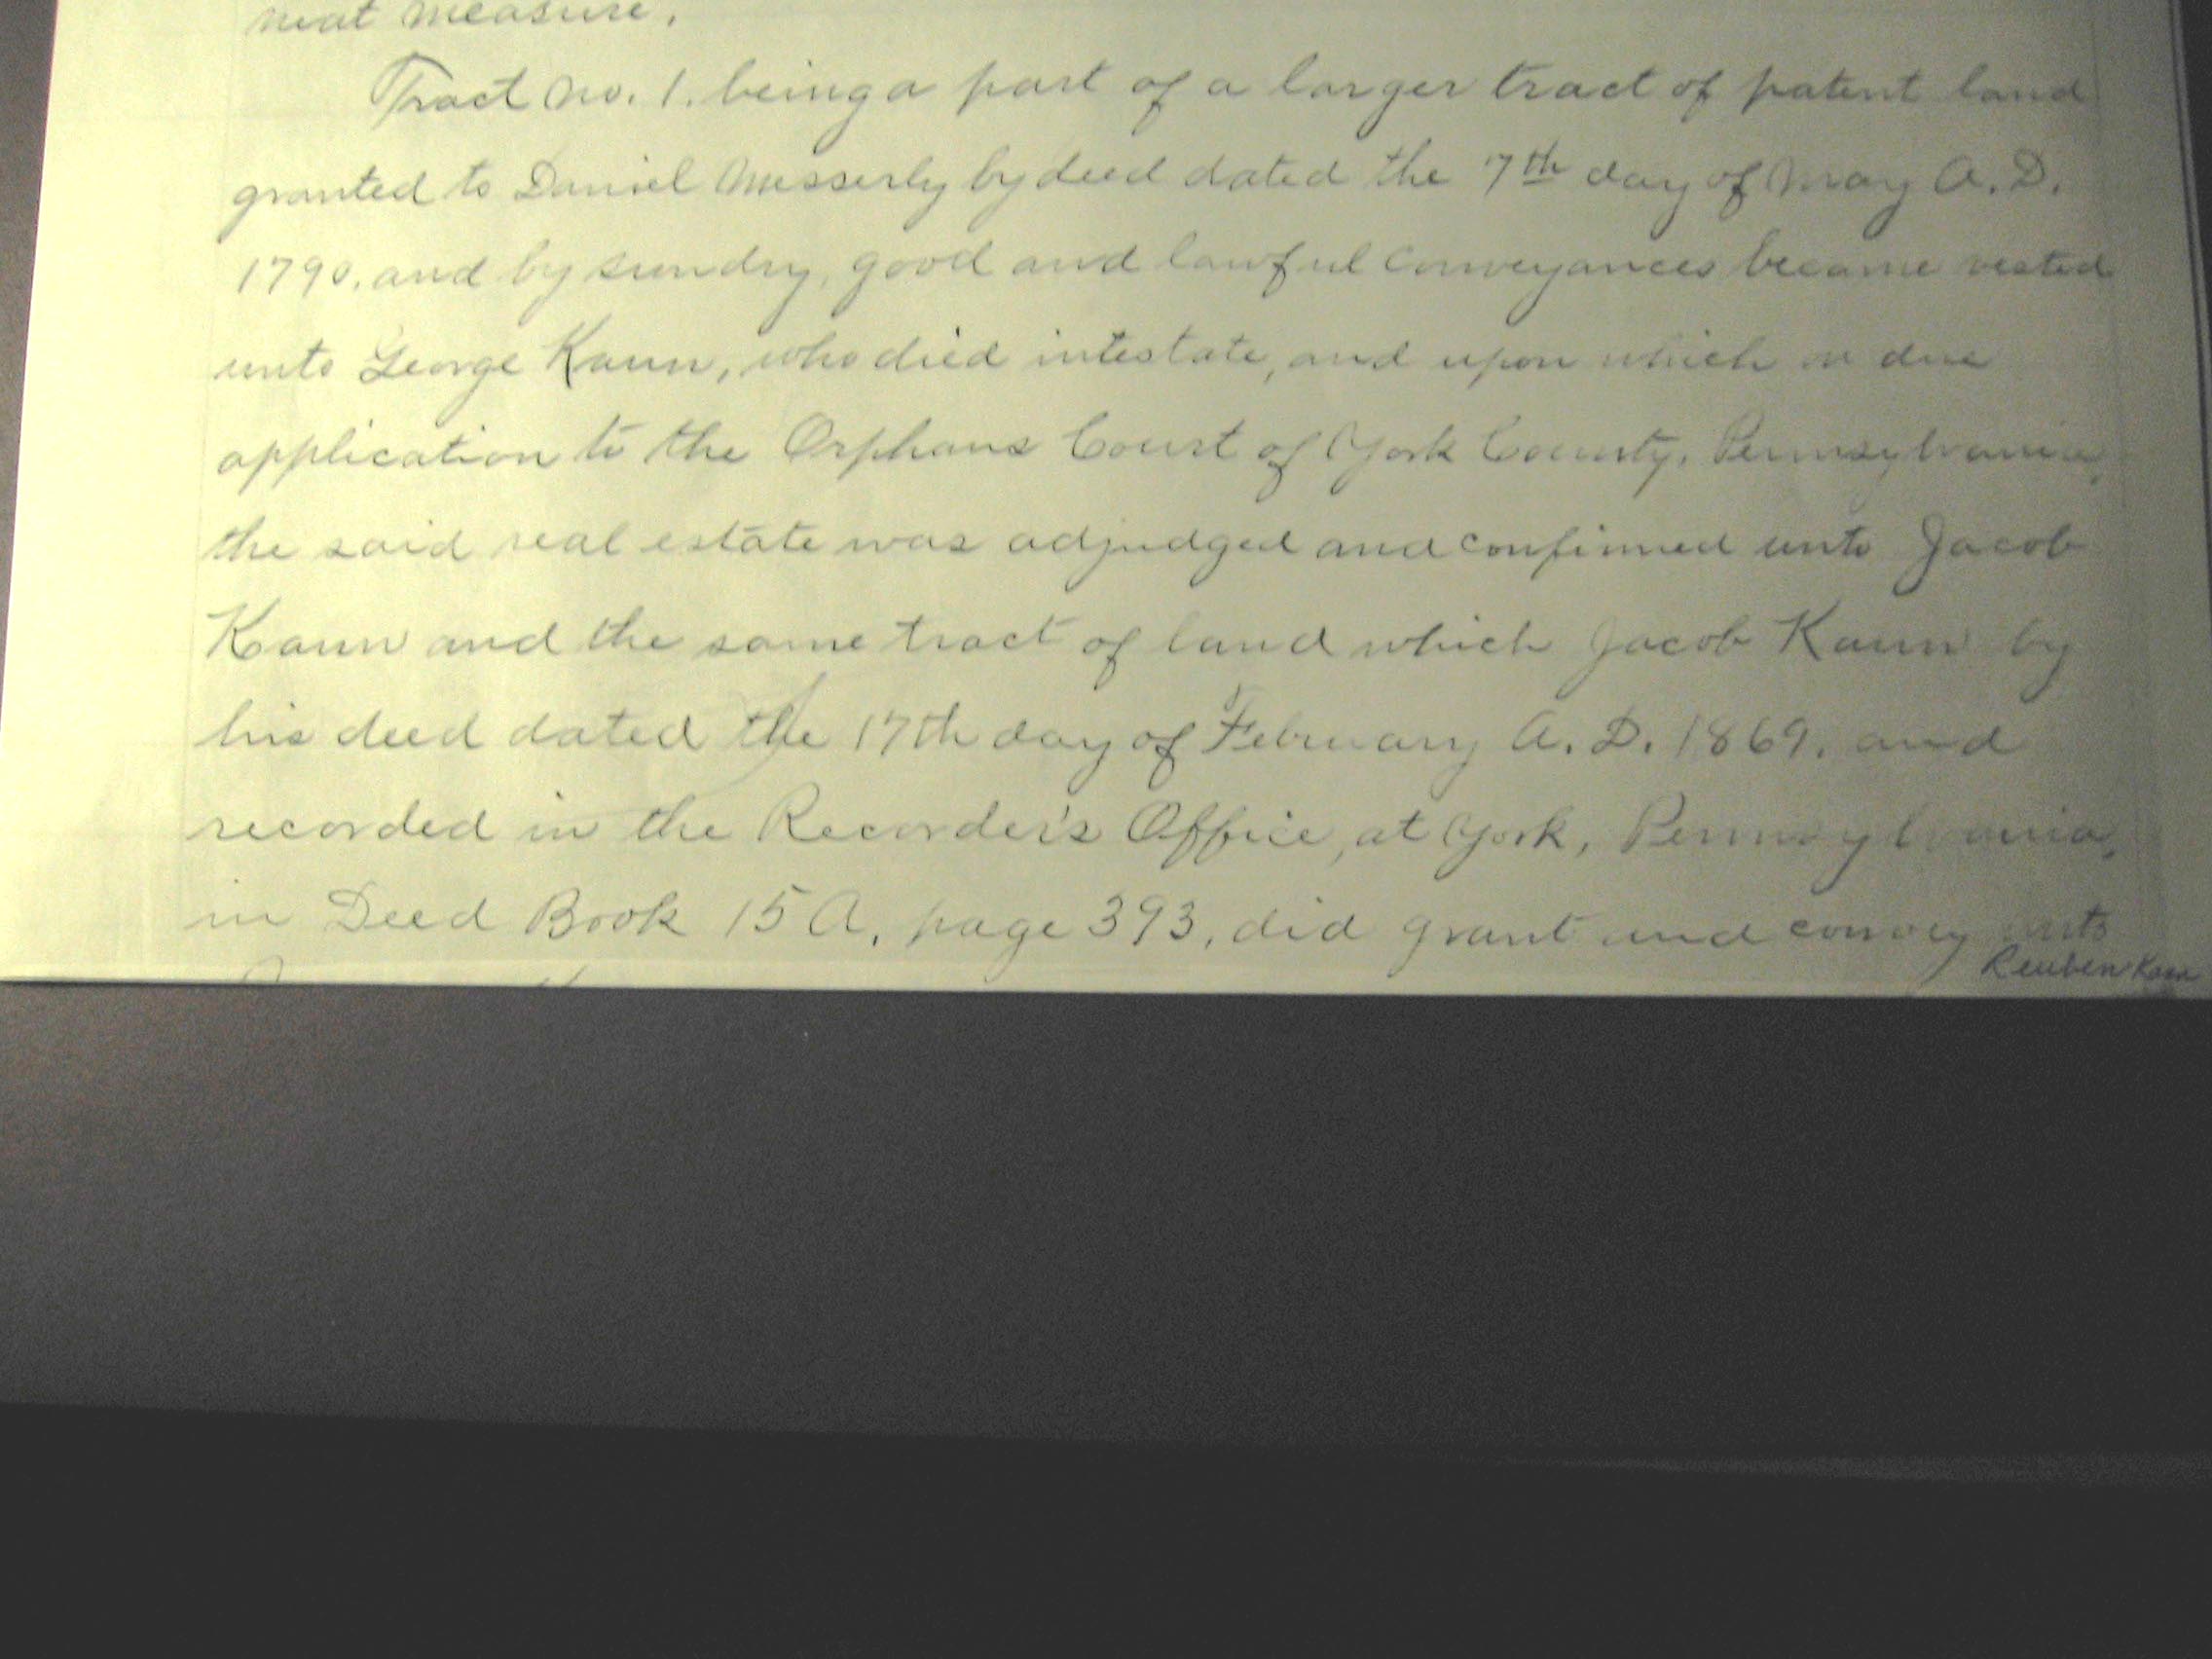 neat measure.
Tract no. 1. being a part of a larger tract of patent land
granted to Daniel Messerly by deed dated the 7th day of May A. D.
1790. and by sundry, good and lawful conveyances became vested
unto George Kann, who died intestate, and upon which on due
application to the Orphans Court of York County, Pennsylvania,
the said real estate was adjudged and confirmed unto Jacob
Kann and the same tract of land which Jacob Kann by
his deed dated the 17th day of February A. D. 1869. and
recorded in the Recorder's Office, at York, Pennsylvania,
in Deed Book 15 A, page 393, did grant and convey unto
Reuben Kann